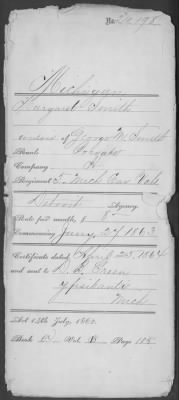 No. 20,198
Michigan
Margaret Smith
widow of George W Smith
Rank Private
Company
Regiment 5 Mich Cav Vols
Detroit Agency
Rate per month, $ 8
Commencing June 24 1863
Certificate dated April 25, 1864
and sent to Green
Ypsilanti
Mich
Act 14th July, 1862.
Book Vol. Page